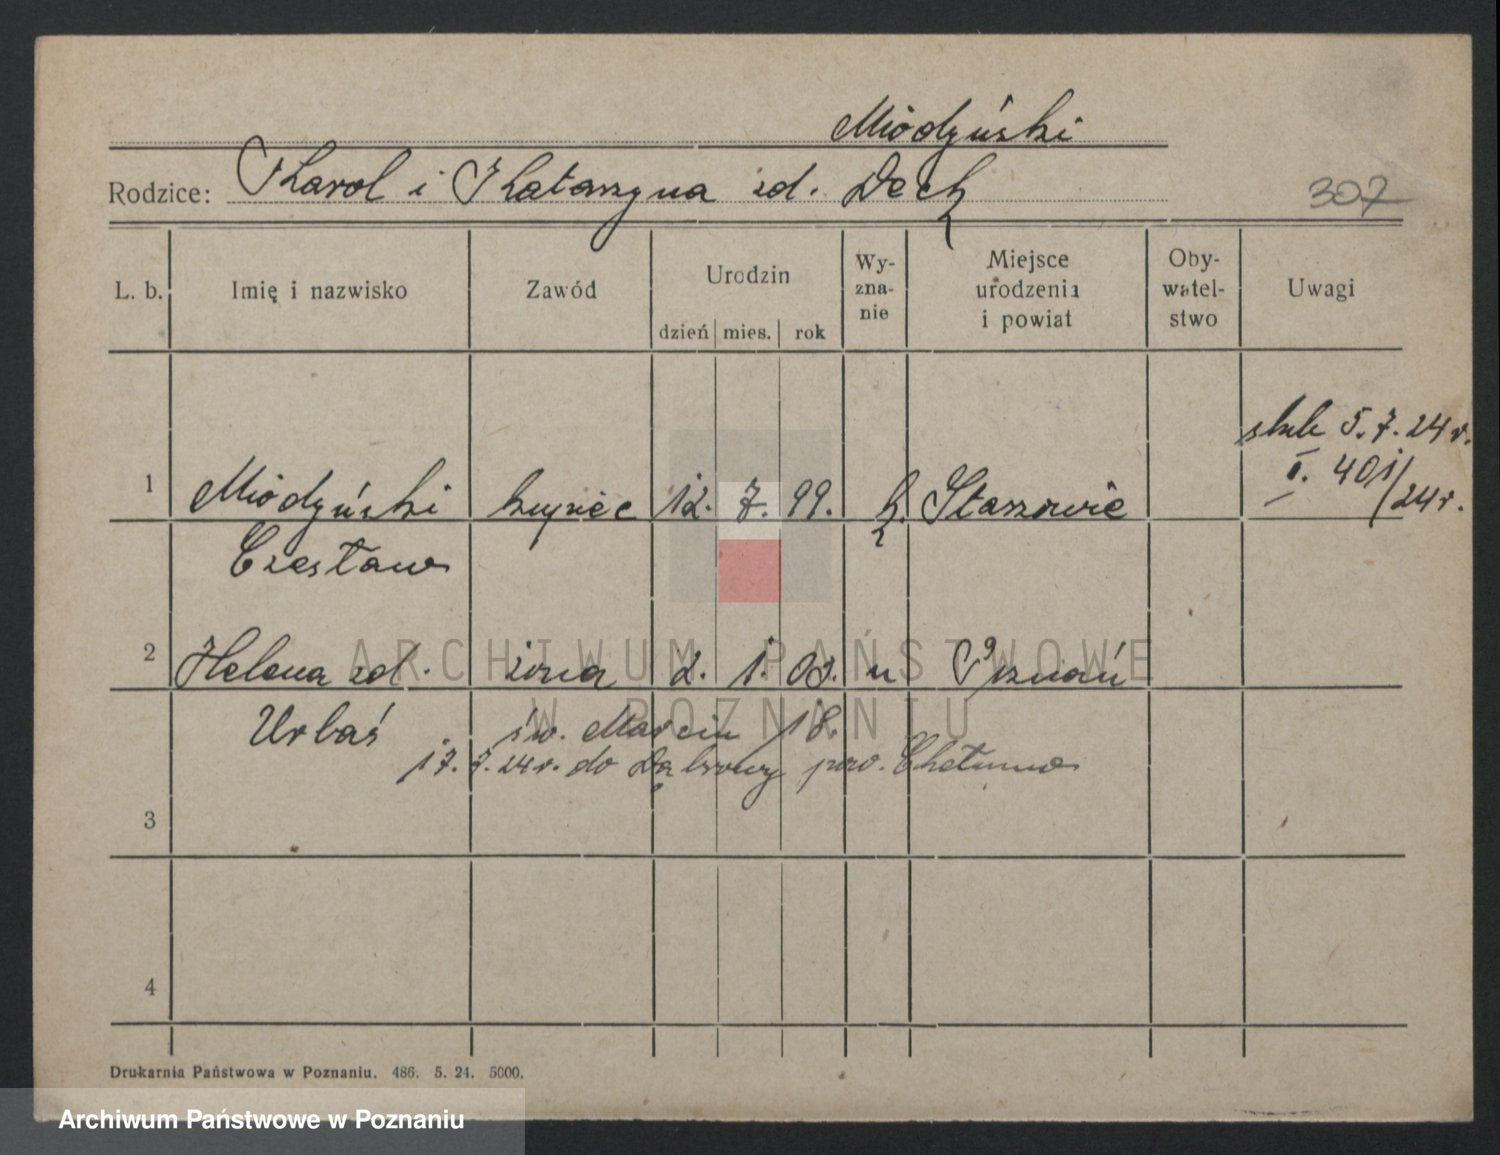 Miodyński
Rodzice: Karol i Katarzyna zd. Dech
307
L. b. Imię i nazwisko Zawód Urodzin dzień mies. rok Wy-zna-nie Miejsce urodzenia i powiat Oby-watel-stwo Uwagi
ślub 5.7.24 r.
I. 401/24 r.
1 Miodyński kupiec 12. 7. 99. k. Staszowie
Czesław
2 Helena zd. żona 2. 1. 03. " Poznań
Urbaś św. Marcin 18.
17.7.24 r. do Dąbrowy pow. Chełmno
3
4
Drukarnia Państwowa w Poznaniu. 486. 5. 24. 5000.
ARCHIWUM PAŃSTWOWE
W POZNANIU
Archiwum Państwowe w Poznaniu